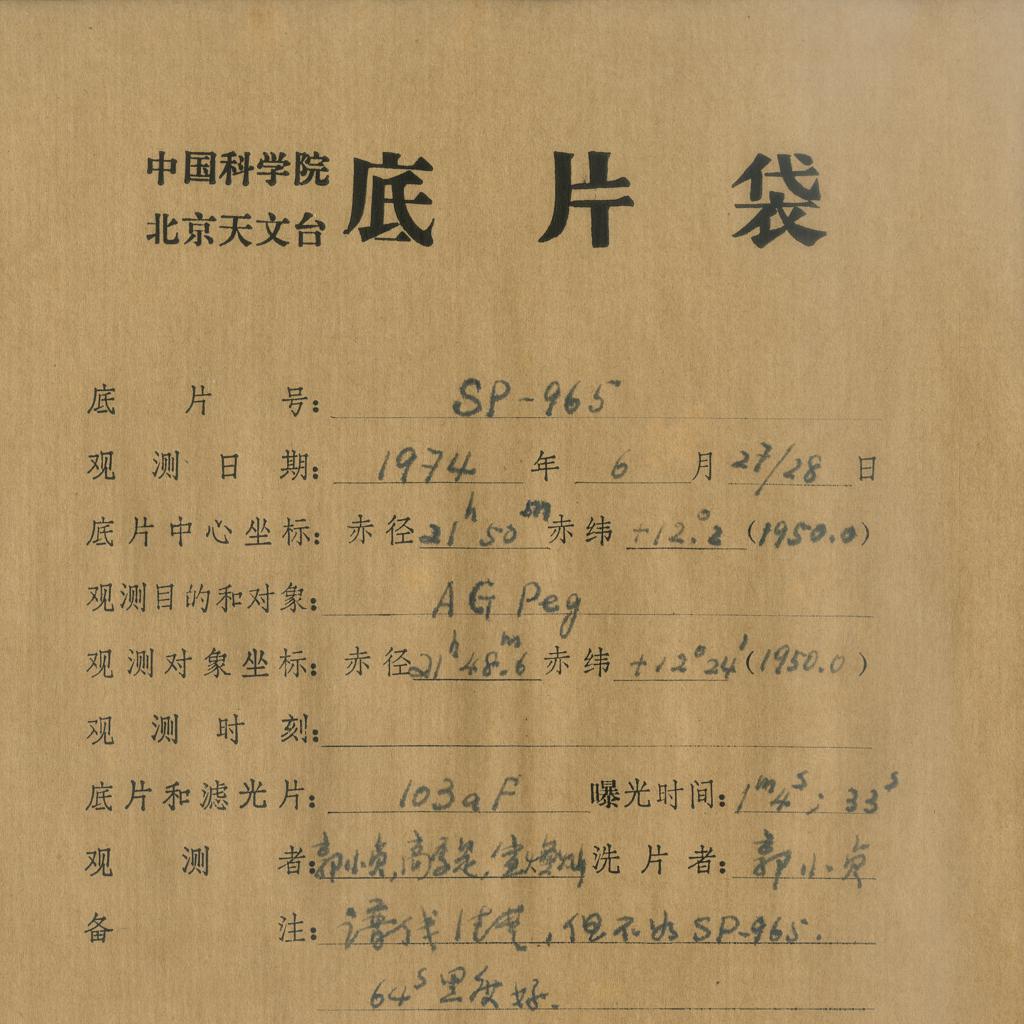 中国科学院
北京天文台
底片袋
底片号: SP-965
观测日期: 1974年6月27/28日
底片中心坐标: 赤径21h50m赤纬+12°.2(1950.0)
观测目的和对象: AG Peg
观测对象坐标: 赤径21h48m.6赤纬+12°24′(1950.0)
观测时刻:
底片和滤光片: 103aF 曝光时间: 1m4s; 33s
观测者: 郭小贞, 洗片者: 郭小贞
备注: 谱线清楚,但不如SP-965.
64s黑度好.